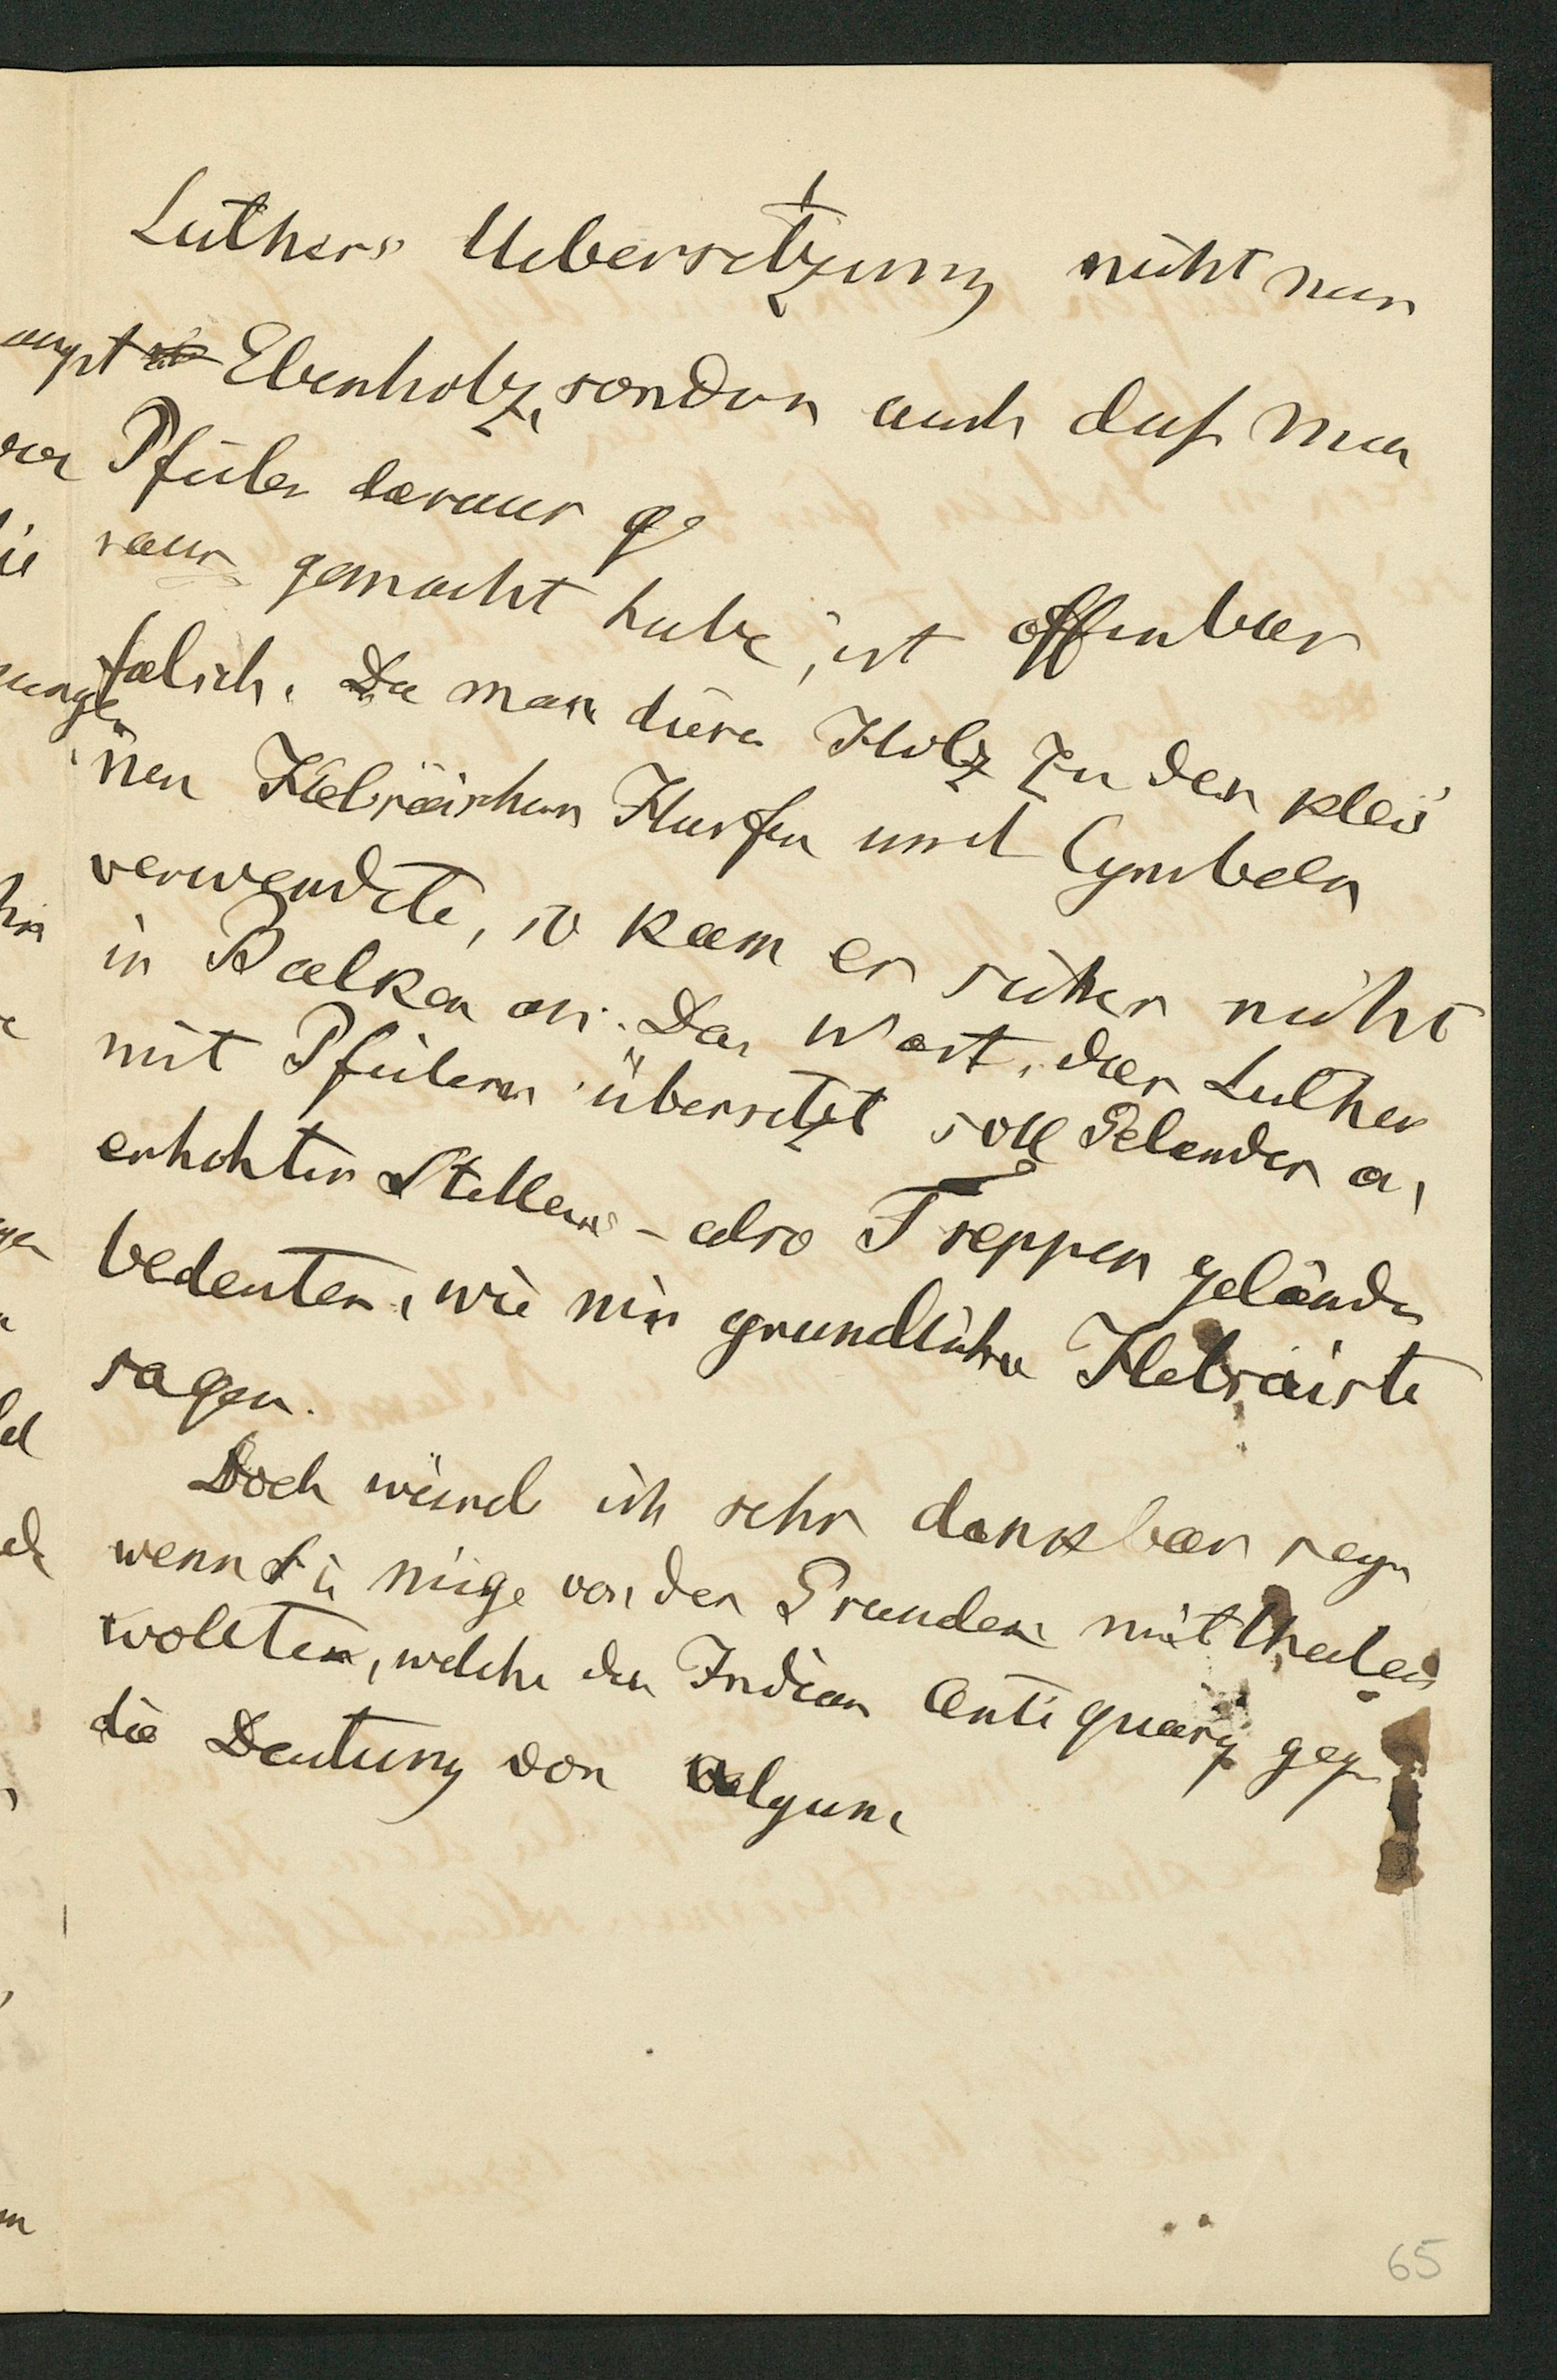 Luthers Uebersetzung nicht nur
Ebenholz, sondern auch daß man
Pfeiler daraus ge
raus gemacht habe, ist offenbar
falsch. Da man diese Holz zu den klei
nen Hebräischen Harfen und Cymbeln
verwendete, so kam er sicher nicht
in Balken an. Das Wort, das Luther
mit Pfeilern übersetzt soll Gelander an
erhohten Stellen - also Treppen geländer
bedeuten, wie mir grundliche Hebräiste
sagen.
Doch würde ich sehr dankbar seyn
wenn Sie einige von den Grunden mittheilen
wollten, welche der Indian Antiquary gegen
die Deutung von algum
65